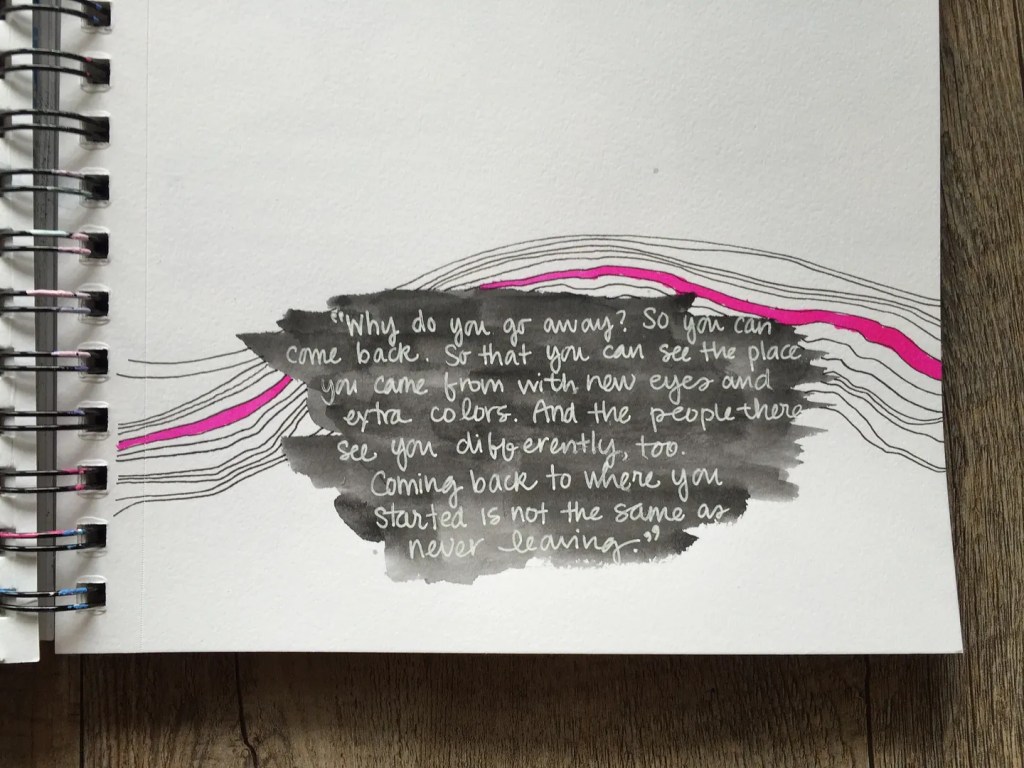 “Why do you go away? So you can
come back. So that you can see the place
you came from with new eyes and
extra colors. And the people there
see you differently, too.
Coming back to where you
started is not the same as
never leaving.”